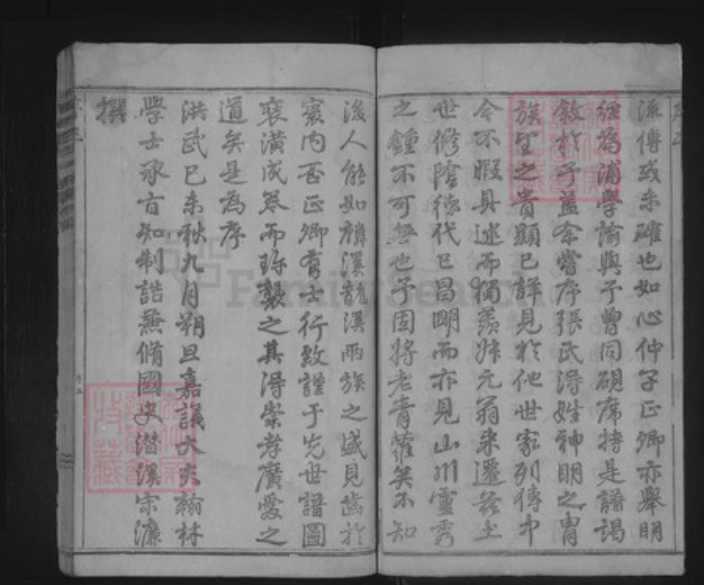 流傳或未確也如心仲子正卿亦舉明
經為浦學諭與予曾同硯席持是譜謁
敘於予蓋余嘗序張氏得姓神明之胄
族望之貴顯已詳見於他世家列傳中
今不暇具述而獨羨始元翁來遷茲土
世修陰德代已昌明而亦見山川靈秀
之鍾不可無也予因將老青蘿矣不知
後人能如麟溪龍溪兩族之盛見齒於
寰內否正卿有士行致謹于先世譜圖
裒潢成卷而珍襲之其得崇孝廣愛之
道矣是為序
洪武己未秋九月朔旦嘉議大夫翰林
學士承旨知制誥兼脩國史潛溪宋濂
撰
FamilySearch